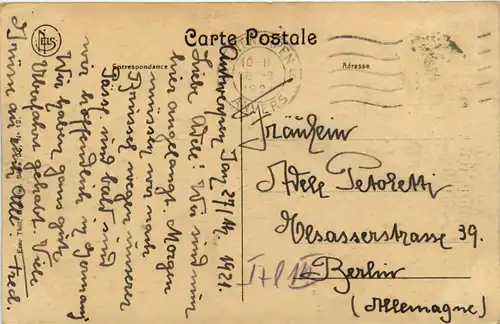 Carte Postale
Correspondance
Adresse
NELS
ANTWERPEN
ANVERS
10-11
Antwerpen, 1921.
Liebe Adele! Wir sind nun
hier angelangt. Morgen
müssen wir nach
Brüssel wegen unserer
Pässe und bald sind
wir hoffentlich in Germany
Wir haben ganz gute
Überfahrt gehabt. Viele
Grüsse an euch Alle
Fred.
Fräulein
Adele
Elsasserstrasse 39.
Berlin
(Allemagne)